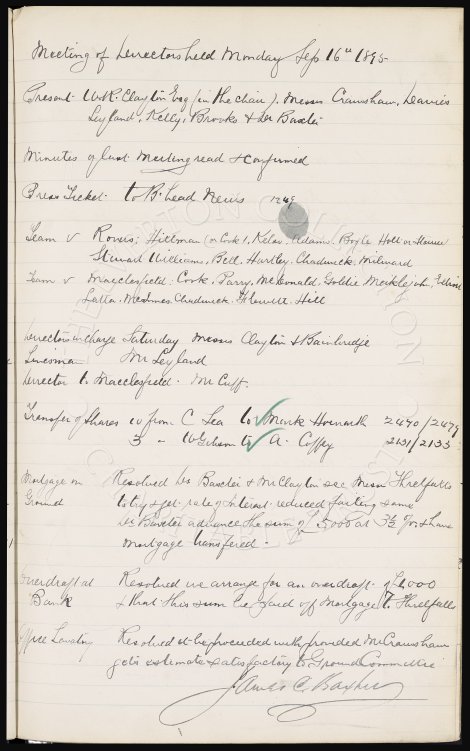 Meeting of Directors held Monday Sep 16th 1895
Present W.R. Clayton Esq (in the chair). Messrs Crawshaw, Davies
Leyland, Kelly, Brooks & Dr Baxter
Minutes of last Meeting read & confirmed
Press Ticket to B. head News 1249
Team v Rovers; Hillman (or Cook), Kelso, Adams, Boyle Holt or Storrier
Stewart Williams, Bell, Hartley, Chadwick, Milward
Team v Macclesfield. Cook, Parry, McDonald, Goldie, Meiklejohn, Elliott
Latta, McInnes, Chadwick, Flewitt, Hill
Directors in charge Saturday Messrs Clayton & Bainbridge
Linesman Mr Leyland
Director to Macclesfield. Mr Cuff.
Transfer of Shares 10 from C Lea to Mark Howarth 2470/2479
3 " W Gibson to A. Coffey 2131/2133
Mortgage on Ground Resolved Dr Baxter & Mr Clayton see Messrs Threlfalls
to try & get rate of interest reduced failing same
Dr Baxter advance the sum of £5000 at 3½ % & have
Mortgage transferred.
Overdraft at Bank Resolved we arrange for an overdraft of £1,000
& that this sum be paid off Mortgage to Threlfalls
Office Lavatory Resolved it be proceeded with provided Mr Crawshaw
gets estimate satisfactory to Ground Committee
James C. Baxter